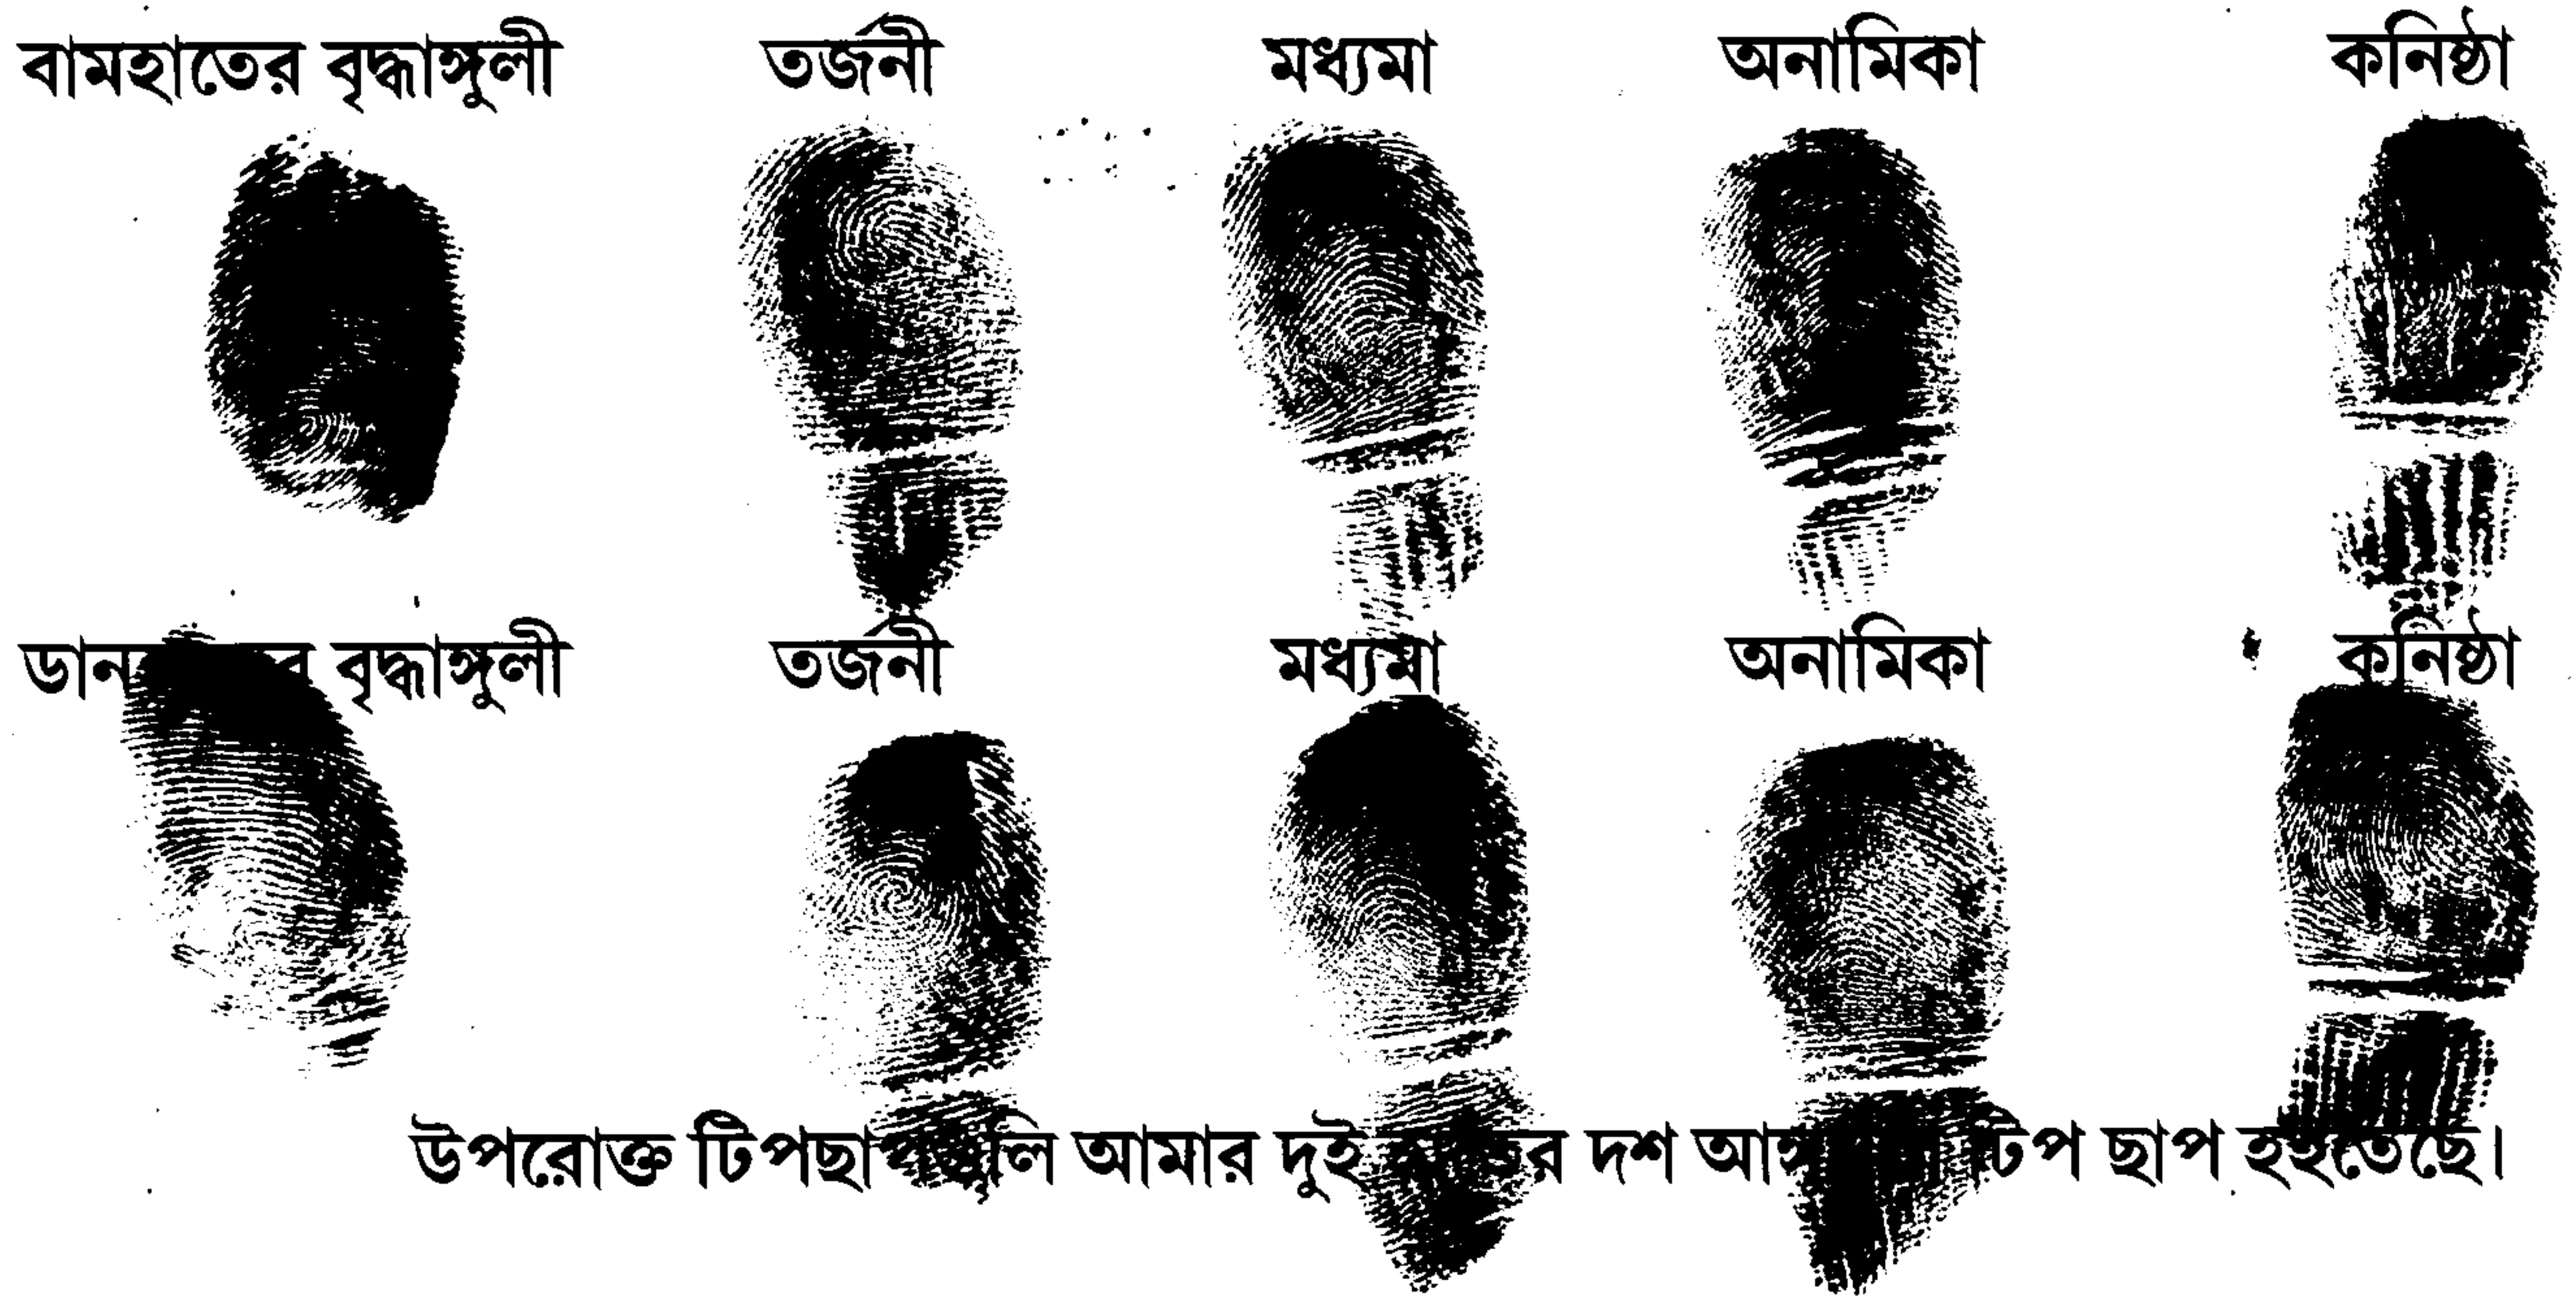 বামহাতের বৃদ্ধাঙ্গুলী তর্জনী মধ্যমা অনামিকা কনিষ্ঠা
বৃদ্ধাঙ্গুলী তর্জনী মধ্যমা অনামিকা কনিষ্ঠা
উপরোক্ত আমার দুই দশ টিপ ছাপ হইতেছে।